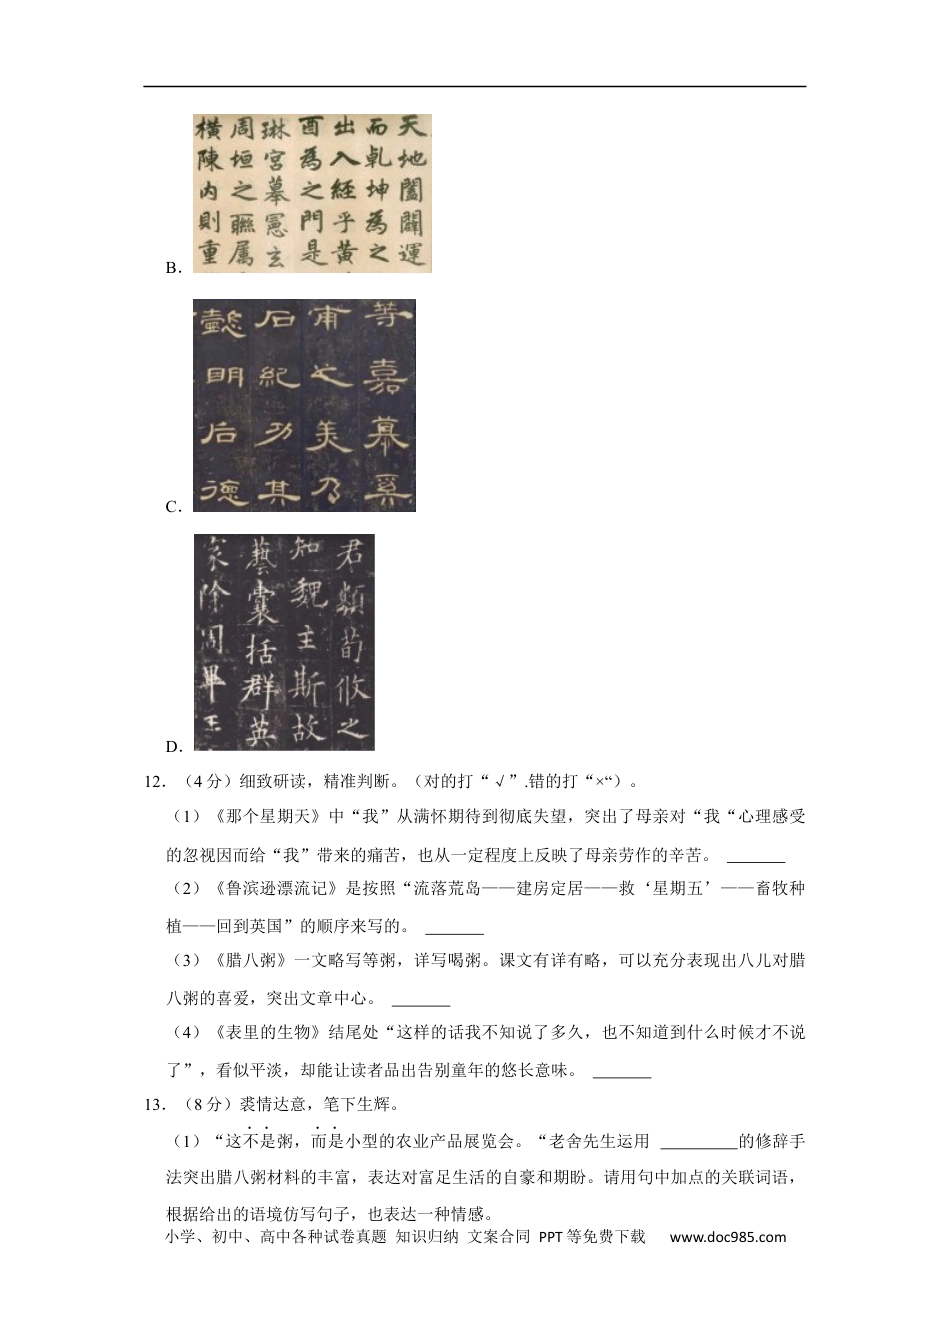 天地闔闢運
而乹坤為之
出入經乎黄
酉為之門是
琳宮墓
周垣之聮属
橫陳内則重
B．
等嘉慕奚
甫之美乃
石紀功其
懿明后德
C．
君類荀攸之
知魏主斯故
藝囊括群英
家除周畢王
D．
12．（4分）细致研读，精准判断。（对的打“√”.错的打“×“）。
（1）《那个星期天》中“我”从满怀期待到彻底失望，突出了母亲对“我“心理感受
的忽视因而给“我”带来的痛苦，也从一定程度上反映了母亲劳作的辛苦。 ______
（2）《鲁滨逊漂流记》是按照“流落荒岛——建房定居——救‘星期五’——畜牧种
植——回到英国”的顺序来写的。 ______
（3）《腊八粥》一文略写等粥，详写喝粥。课文有详有略，可以充分表现出八儿对腊
八粥的喜爱，突出文章中心。 ______
（4）《表里的生物》结尾处“这样的话我不知说了多久，也不知道到什么时候才不说
了”，看似平淡，却能让读者品出告别童年的悠长意味。 ______
13．（8分）裘情达意，笔下生辉。
（1）“这不是粥，而是小型的农业产品展览会。“老舍先生运用 ________的修辞手
法突出腊八粥材料的丰富，表达对富足生活的自豪和期盼。请用句中加点的关联词语，
根据给出的语境仿写句子，也表达一种情感。
小学、初中、高中各种试卷真题 知识归纳 文案合同 PPT等免费下载 www.doc985.com